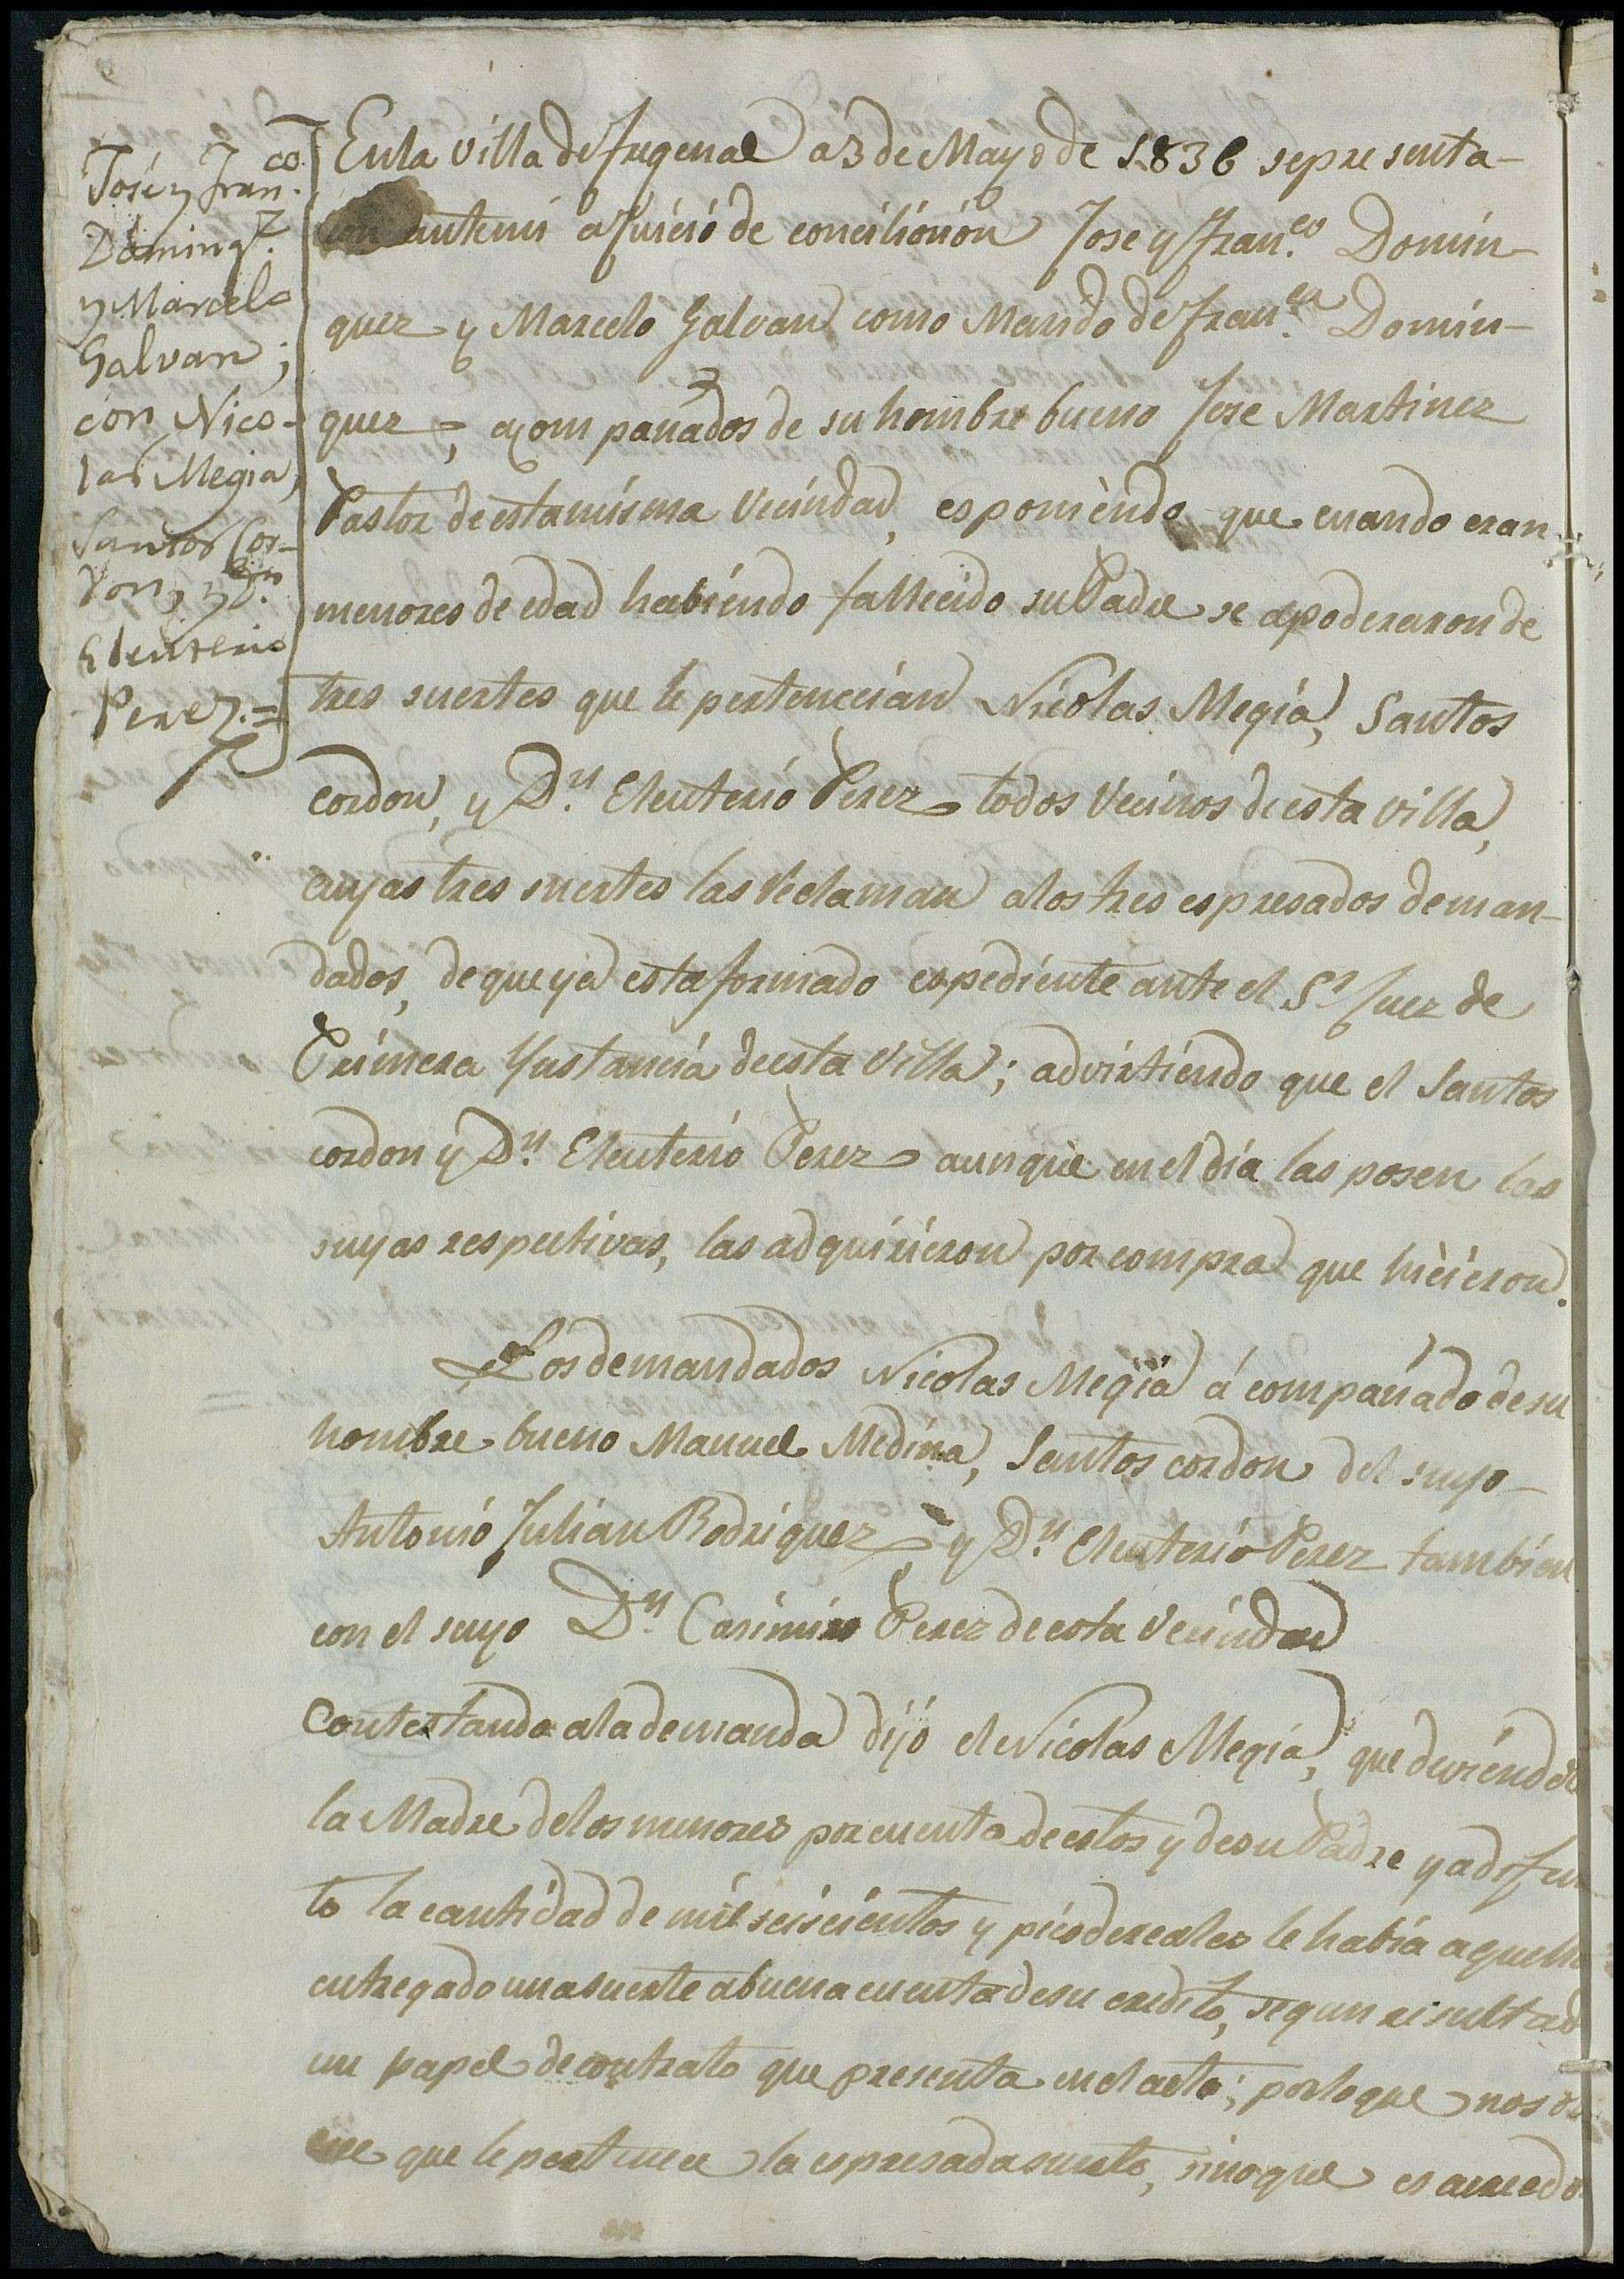 José y Fran.co
Doming.z
y Marcelo
Galvan;
con Nico-
las Megia,
Santos Cor-
don, y Dn.
Eleuterio
Perez.=
En la villa de Fregenal a 3 de Mayo de 1836 se presenta-
ron ante mi a Juicio de conciliónión Jose y Fran.co Domin-
guez y Marcelo Galvan como Marido de Fran.ca Domin-
guez =, acompañados de su hombre bueno Jose Martinez
Pastor de esta misma Vecindad, esponiendo que cuando eran
menores de edad habiendo fallecido su Padre se apoderaron de
tres suertes que le pertenecian Nicolas Megia, Santos
cordon, y D.n Eleuterio Perez todos Vecinos de esta villa,
cuyas tres suertes las Reclaman a los tres espresados deman-
dados, de que ya esta formado espediente ante el Sr Juez de
Primera Ynstancia de esta Villa; advirtiendo que el Santos
cordon y D.n Eleuterio Perez aunque en el día las posen las
suyas respectivas, las adquirieron por compra que hicieron.
Los demandados Nicolas Megia á compañado de su
hombre bueno Manuel Medina, Santos cordon del suyo
Antonio Julian Rodriguez y D.n Eleuterio Perez tambien
con el suyo D.n Casimiro Perez de esta Vecindad
Contestando a la demanda dijo el Nicolas Megia, que deviendole
la Madre de los menores por cuenta de estos y de su Padre ya difun
to la cantidad de mil seiscientos y pico de reales le habia aquella
entregado una suerte a buena cuenta de su credito, segun resulta de
un papel de contrato que presenta en el acto; por lo que no
que le pertenece la espresada suerte, sino que es acreedor